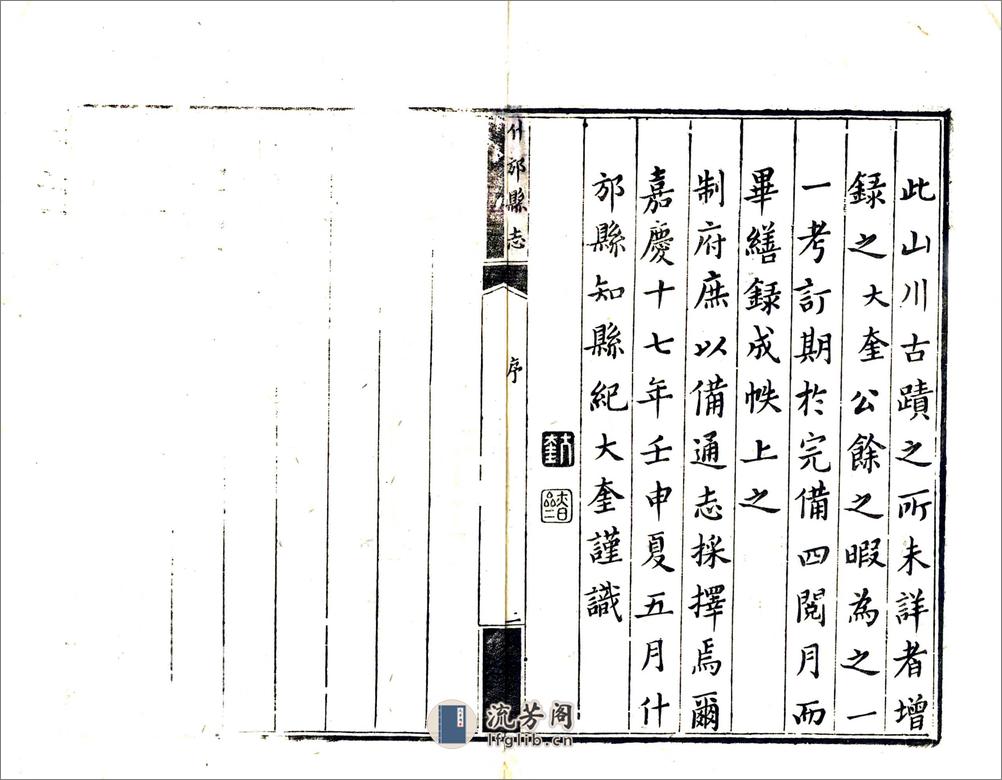 此山川古蹟之所未詳者增
録之大奎公餘之暇為之一
一考訂期於完備四閱月而
畢繕録成帙上之
制府庶以備通志採擇焉爾
嘉慶十七年壬申夏五月什
邡縣知縣紀大奎謹識
大奎
什邡縣志
序
二
流芳阁
lfglib.cn